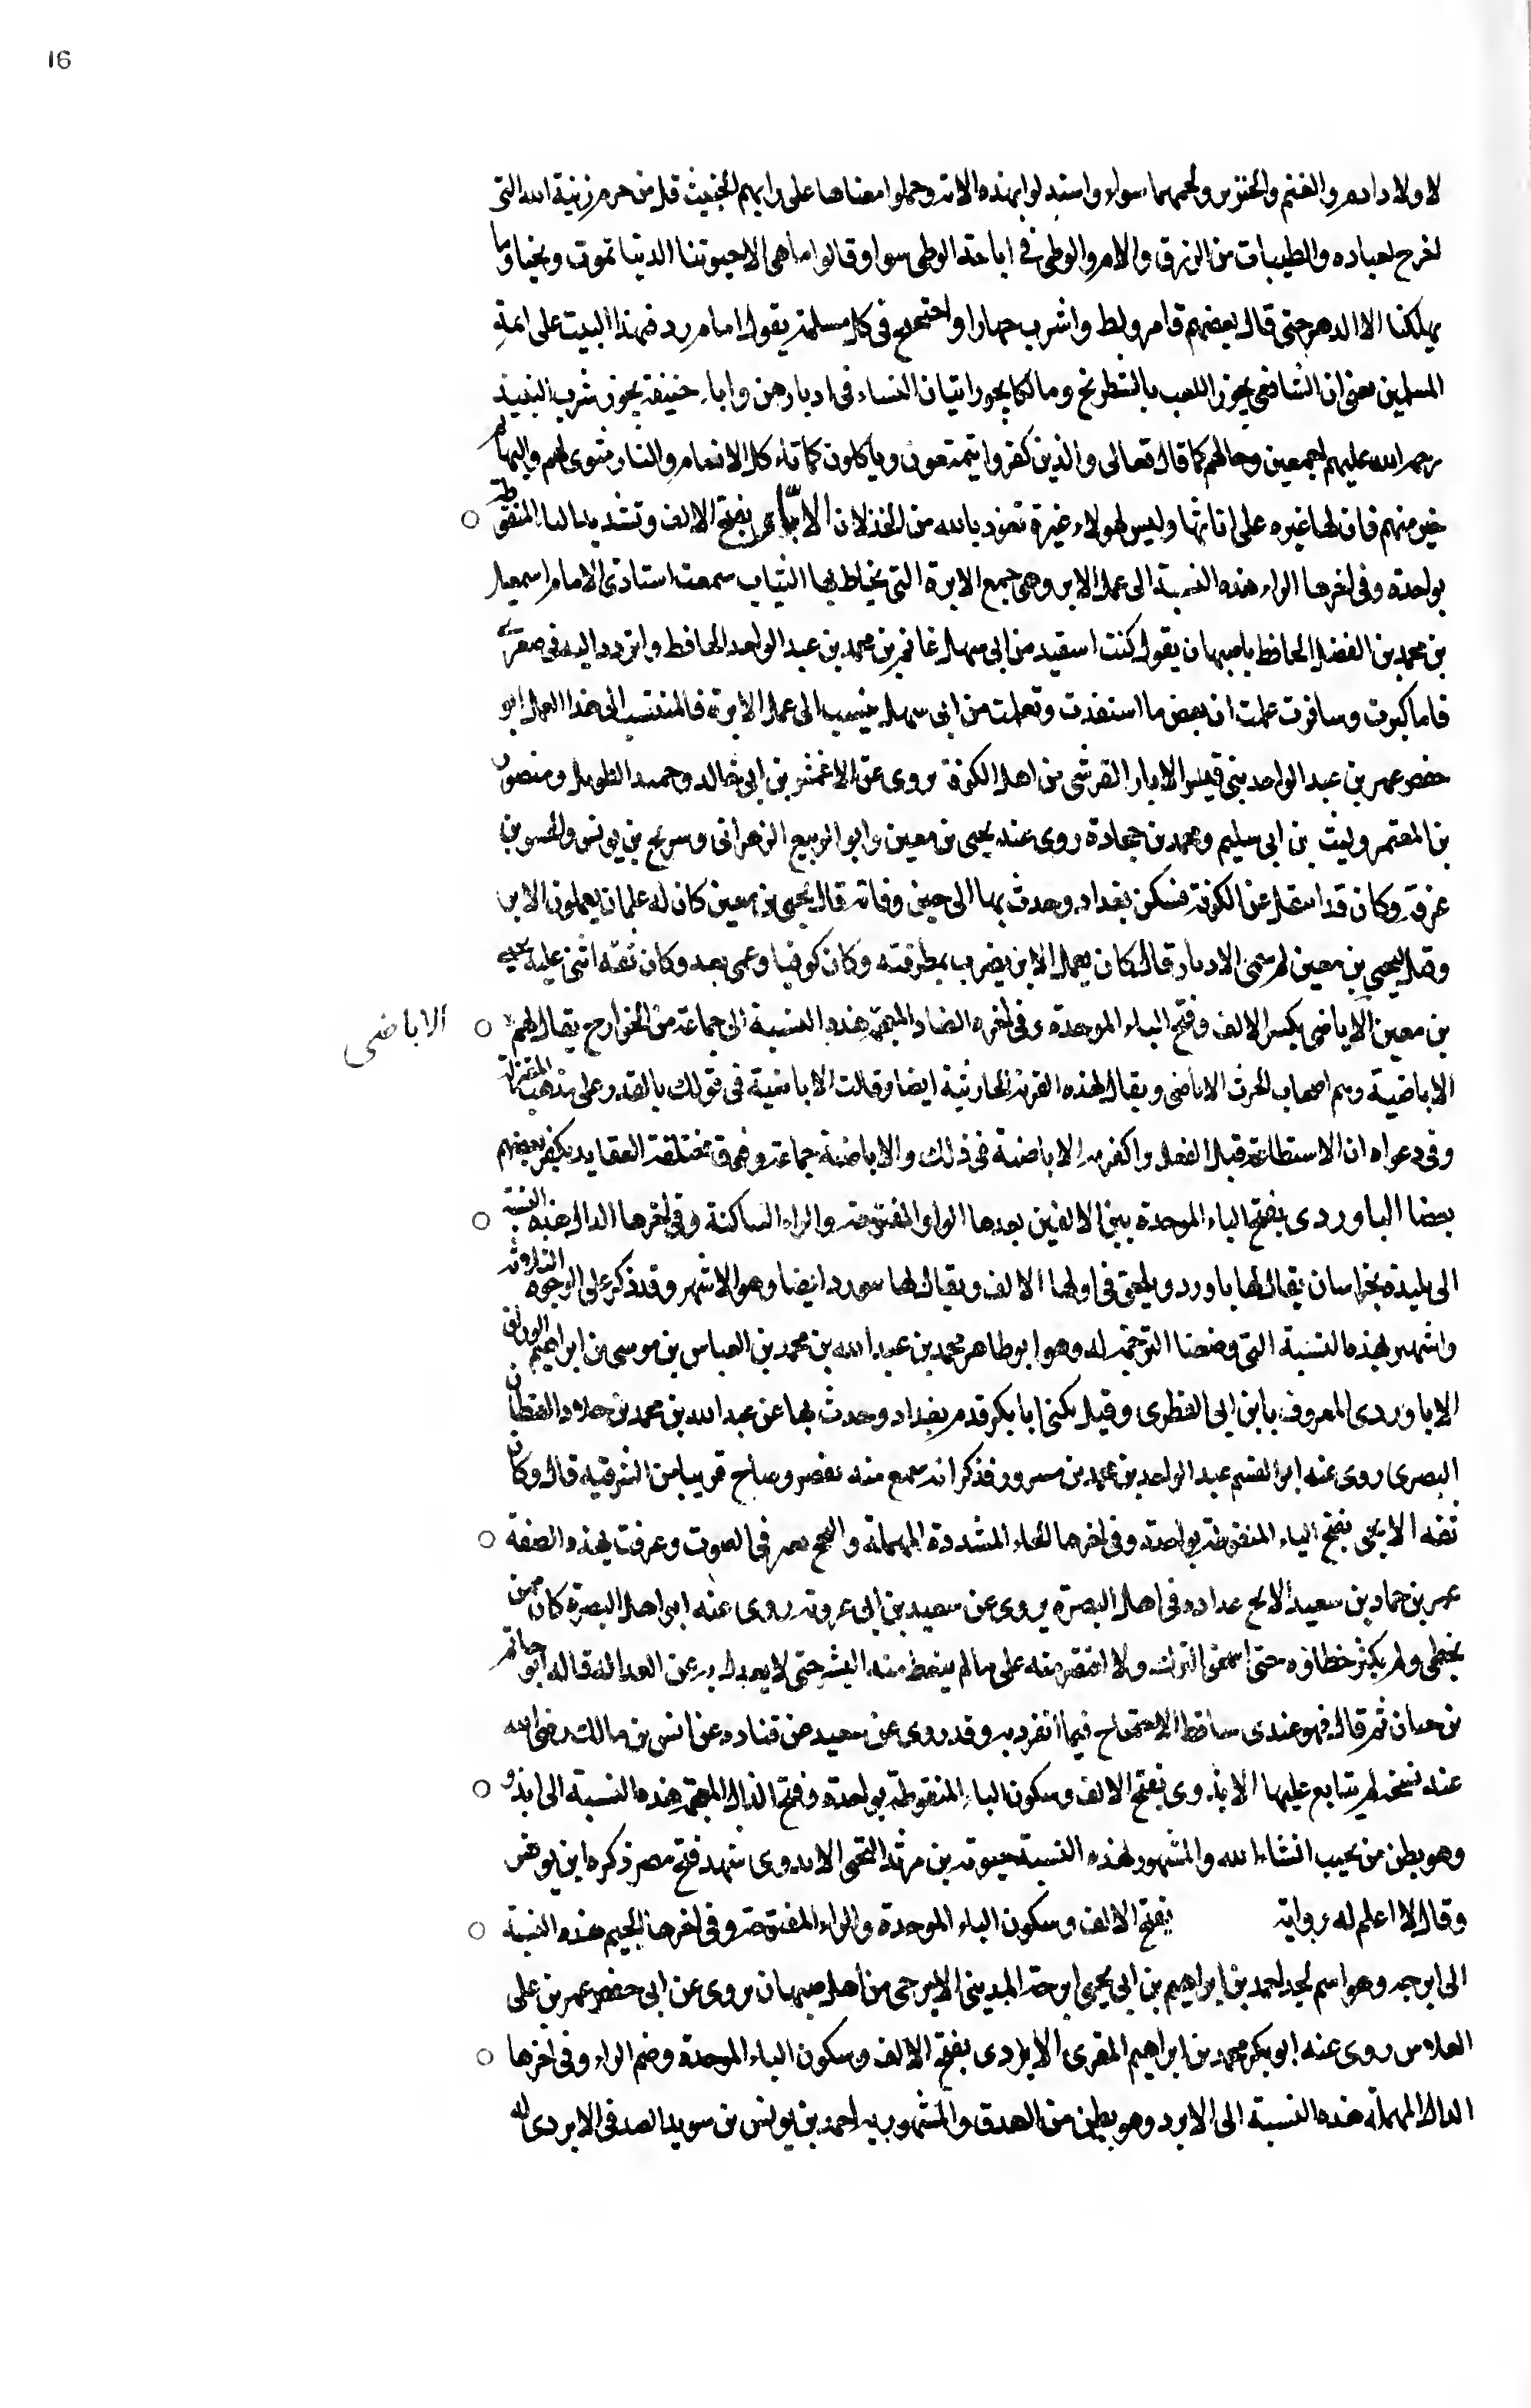 16
لاولاد ادم والغنم والخنزير ولحمهما سواء واستدلوا بهذه الاية وحملوا معناها على رايهم الخبيث قل من حرم زينة الله التى
اخرج لعباده والطيبات من الرزق والام والوطى فى اباحة الوطى سوا وقالوا ما هى الا حيوتنا الدنيا نموت ونحيا وما
يهلكنا الا الدهر حتى قال بعضهم قامر ولط واشرب جهارا واحتجج فى كل مسلة بقول امام رد بهذا البيت على ايمة
المسلمين يعنى ان الشافعى يجوز اللعب بالشطرنج ومالكا يجوز اتيان النساء فى ادبارهن وابا حنيفة يجوز شرب النبيذ
رحمة الله عليهم اجمعين وحالهم كما قال تعالى والذين كفروا يتمتعون وياكلون كما تاكل الانعام والنار مثوى لهم والبهايم
خير منهم فان لها غيره على اناثها وليس لهولاء غيرة نعوذ بالله من الخذلان الابّار بفتح الالف وتشديد البا المنقوطة
بواحدة وفى اخرها الراء هذه النسبة الى عمل الابر وهى جمع الابرة التى يخاط بها الثياب سمعت استاذى الامام اسمعيل
بن محمد بن الفضل الحافظ باصبهان يقول كنت استفيد من ابى سهل غانم بن محمد بن عبد الواحد الحافظ واتردد اليه فى صغرى
فلما كبرت وسافرت علمت ان بعض ما استفدت وتعلمت من ابى سهل ينسب الى عمل الابرة فالمنتسب الى هذا العمل ابو
حفص عمر بن عبد الواحد بنى قيس الابار القرشى من اهل الكوفة يروى عن الاعمش بن ابى خالد وحميد الطويل ومنصور
بن المعتمر وليث بن ابى سليم ومحمد بن جحادة روى عنه يحيى بن معين وابو الربيع الزهرانى وسريج بن يونس والحسن بن
عرفة وكان قد انتقل عن الكوفة فسكن بغداد وحدث بها الى حين وفاته قال يحيى بن معين كان له غلمان يعملون الابر
وقيل ليحيى بن معين لم سمى الابار قال كان يعمل الابر يضرب بمطرقته وكان كوفيا وعمى بعد وكان ثقة اثنى عليه يحيى
بن معين الاباضى بكسر الالف وفتح الباء الموحدة وفى اخره الضاد المعجمة هذه النسبة الى جماعة من الخوارج يقال لهم
الاباضى
الاباضية وهم اصحاب الحرث الاباضى ويقال لهذه الفرقة الحارثية ايضا وقالت الاباضية فى قولك بالقدر على مذهب المعتزلة
وفى دعواه ان الاستطاعة قبل الفعل واكفرته الاباضية فى ذلك والاباضية جماعة وفرق مختلفة العقايد يكفر بعضهم
بعضا الباوردى بفتح الباء الموحدة بين الالفين بعدها الواو المفتوحة والراء الساكنة وفى اخرها الدال هذه النسبة
الى بليدة بخراسان يقال لها باورد ويلحق فى اولها الالف ويقال لها ايضا وهو الاشهر وقد ذكر على الوجوه الثلاثة
واشتهر بهذه النسبة التى وضعنا الترجمة له وهو ابو طاهر محمد بن عبد الله بن محمد بن العباس بن موسى بن ابراهيم الوراق
الاباوردى المعروف بابن ابى القطرى وقيل يكنى ابا بكر قدم بغداد وحدث بها عن عبد الله بن محمد بن القطان
البصرى روى عنه ابو القسم عبد الواحد بن محمد بن مسرور فذكر انه سمع منه بقصر وضاح قريبا من الشرقية قال وكان
ثقه الابحى بفتح الباء المنقوطة بواحدة وفى اخرها الحاء المشددة المهملة والبحح فى الصوت وعرف بهذه الصفة
عمر بن حماد بن سعيد الابح عداده فى اهل البصرة يروى عن سعيد بن ابى عروبة روى عنه اهل البصرة كان ممن
يخطى ولم يكثر خطاؤه حتى استحق الترك ولا اقتصر منه على ما لم ينفك منه البشر حتى لا يعدل به عن العدالة قاله ابو حاتم
بن حبان ثم قال فهو عندى ساقط الاحتجاج فيما انفرد به وقد روى عن سعيد عن قتاده عن انس بن مالك رضى الله
عنه نسخة لم يتابع عليها الابذوى بفتح الالف وسكون الباء المنقوطة بواحدة وفتح الذال المعجمة هذه النسبة الى ابذو
وهو بطن من تجيب انشاء الله والمشهور بهذه النسبة حيوة بن مرثد التجيبى الابذوى شهد فتح مصر ذكره ابن يونس
وقال لا اعلم له رواية بفتح الالف وسكون الباء الموحدة والراء المفتوحة وفى اخرها الجيم هذه النسبة
الى ابرجه وهو اسم لجد احمد بن ابراهيم بن ابى يحيى ابرجة المدينى الابرجى من اهل اصبهان يروى عن ابى حفص عمر بن على
الفلاس روى عنه ابو بكر محمد بن ابراهيم المقرى الابردى بفتح الالف وسكون الباء الموحدة وضم الراء وفى اخرها
الدال المهملة هذه النسبة الى الابرد وهو بطن من الصدق والمشهور به احمد بن يونس بن سويد الصدفى الابردى له